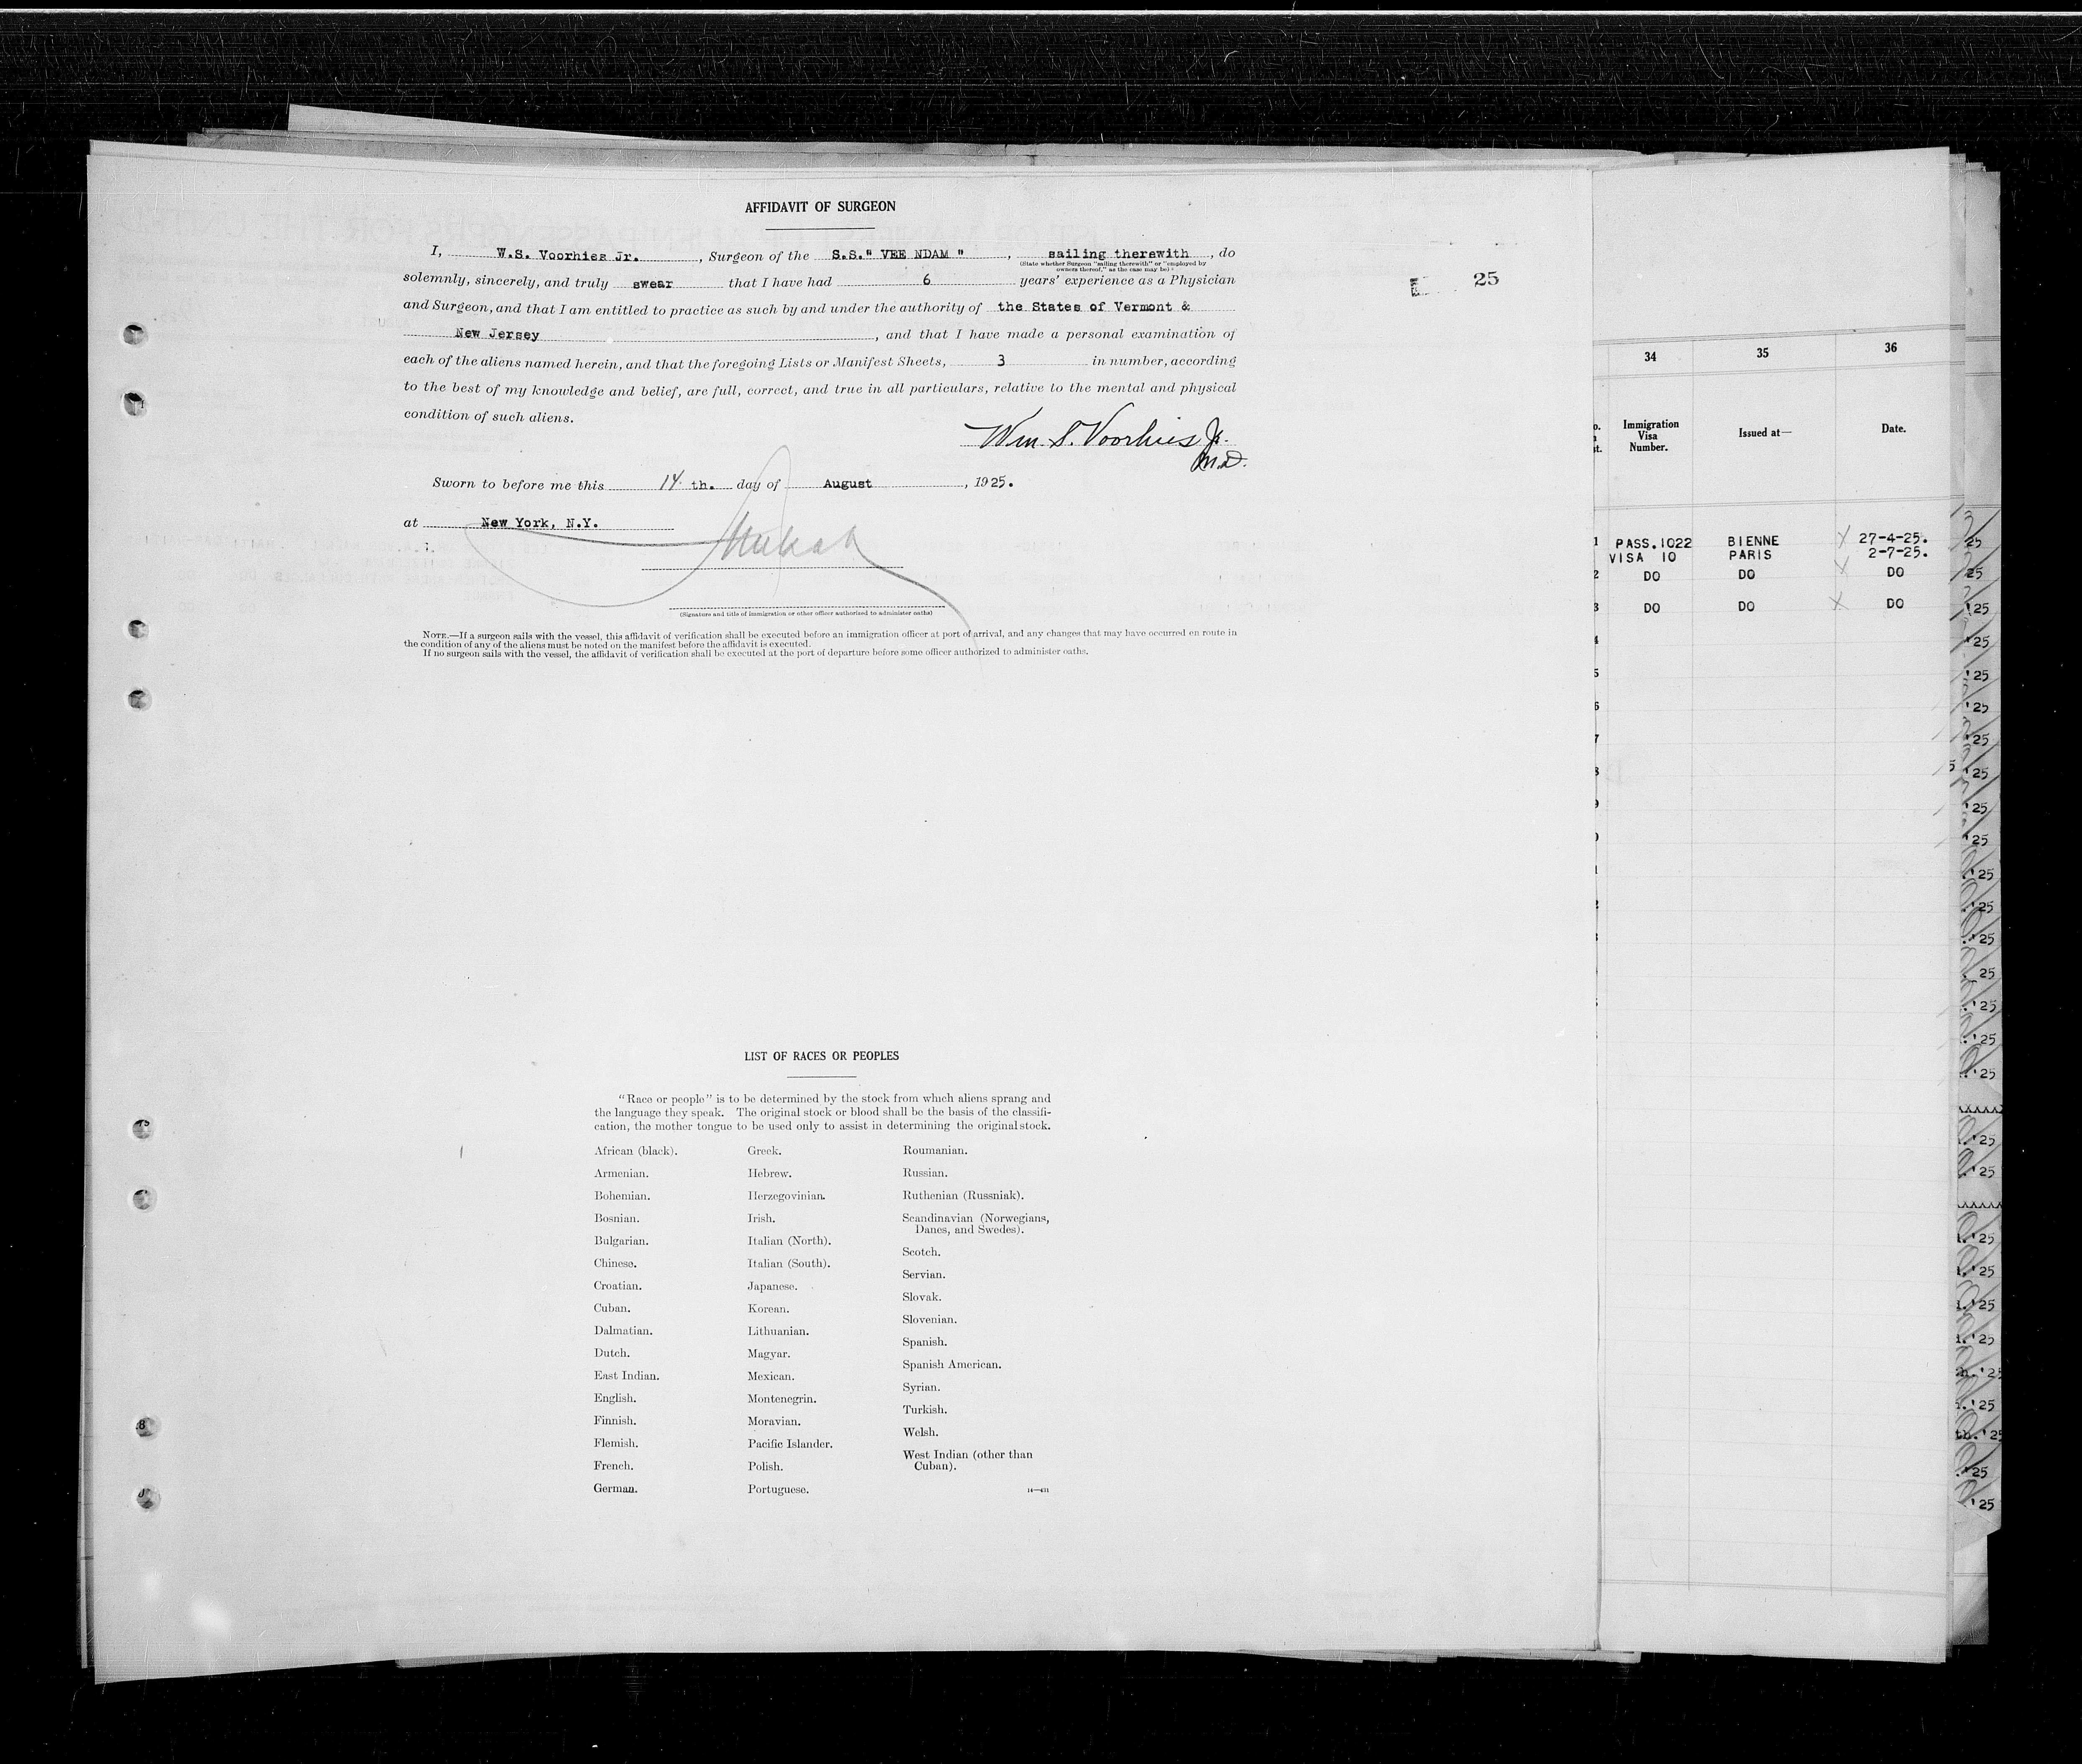 AFFIDAVIT OF SURGEON
I, W.S. Voorhies Jr. , Surgeon of the S.S." VEE NDAM " , sailing therewith , do
(State whether Surgeon "sailing therewith" or "employed by
owners thereof," as the case may be)
solemnly, sincerely, and truly swear that I have had 6 years' experience as a Physician
and Surgeon, and that I am entitled to practice as such by and under the authority of the States of Vermont &
New Jersey , and that I have made a personal examination of
each of the aliens named herein, and that the foregoing Lists or Manifest Sheets, 3 in number, according
to the best of my knowledge and belief, are full, correct, and true in all particulars, relative to the mental and physical
condition of such aliens.
Wm. S. Voorhies Jr.
M.D.
Sworn to before me this 14 th. day of August , 1925.
at New York, N.Y.
(Signature and title of immigration or other officer authorized to administer oaths)
NOTE.—If a surgeon sails with the vessel, this affidavit of verification shall be executed before an immigration officer at port of arrival, and any changes that may have occurred en route in
the condition of any of the aliens must be noted on the manifest before the affidavit is executed.
If no surgeon sails with the vessel, the affidavit of verification shall be executed at the port of departure before some officer authorized to administer oaths.
LIST OF RACES OR PEOPLES
"Race or people" is to be determined by the stock from which aliens sprang and
the language they speak. The original stock or blood shall be the basis of the classifi-
cation, the mother tongue to be used only to assist in determining the original stock.
African (black).
Armenian.
Bohemian.
Bosnian.
Bulgarian.
Chinese.
Croatian.
Cuban.
Dalmatian.
Dutch.
East Indian.
English.
Finnish.
Flemish.
French.
German.
Greek.
Hebrew.
Herzegovinian.
Irish.
Italian (North).
Italian (South).
Japanese.
Korean.
Lithuanian.
Magyar.
Mexican.
Montenegrin.
Moravian.
Pacific Islander.
Polish.
Portuguese.
Roumanian.
Russian.
Ruthenian (Russniak).
Scandinavian (Norwegians,
Danes, and Swedes).
Scotch.
Servian.
Slovak.
Slovenian.
Spanish.
Spanish American.
Syrian.
Turkish.
Welsh.
West Indian (other than
Cuban).
25
34 35 36
Immigration
Visa
Number.
Issued at—
Date.
1 PASS.1022 BIENNE 27-4-25.
VISA 10 PARIS 2-7-25.
2 DO DO DO
3 DO DO DO